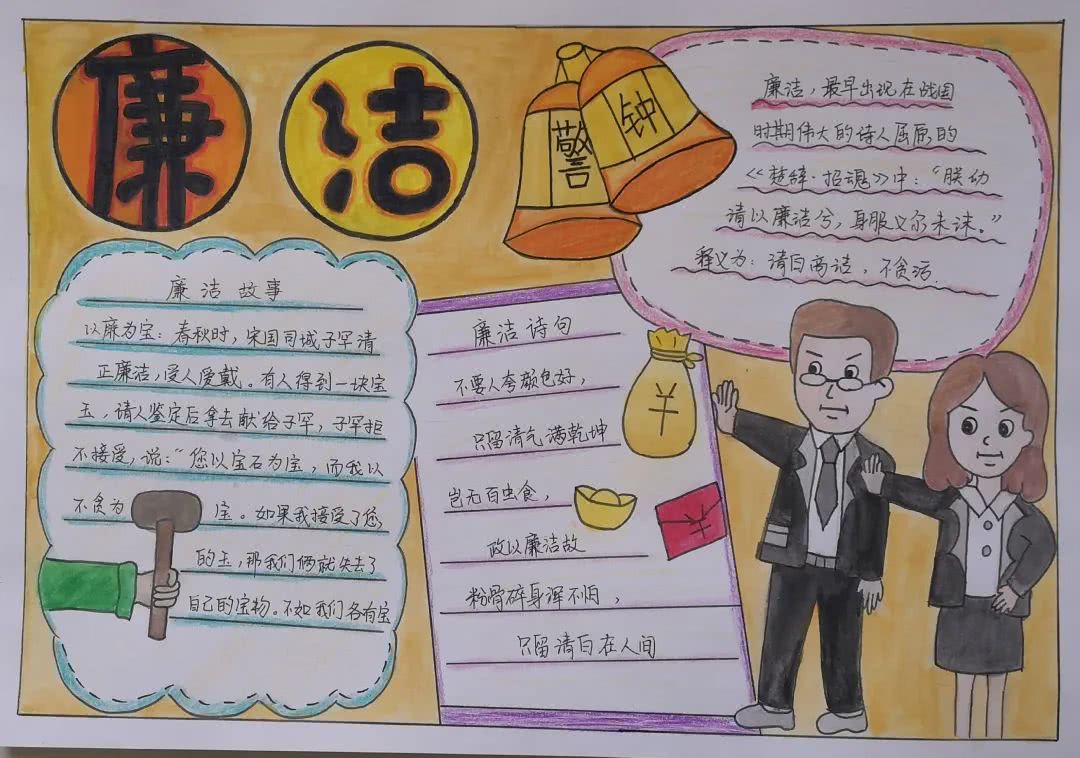 廉洁
警钟
廉洁，最早出现在战国
时期伟大的诗人屈原的
《楚辞·招魂》中："朕幼
请以廉洁兮，身服义尔未沫。"
释义为：清白高洁，不贪污.
廉洁故事
以廉为宝：春秋时，宋国司城子罕清
正廉洁，受人爱戴。有人得到一块宝
玉，请人鉴定后拿去献给子罕，子罕拒
不接受，说："您以宝石为宝，而我以
不贪为宝。如果我接受了您
的玉，那我们俩就失去了
自己的宝物。不如我们各有宝
廉洁诗句
不要人夸颜色好，
只留清气满乾坤
岂无百虫食，
政以廉洁故
粉骨碎身浑不怕，
只留清白在人间
¥
¥